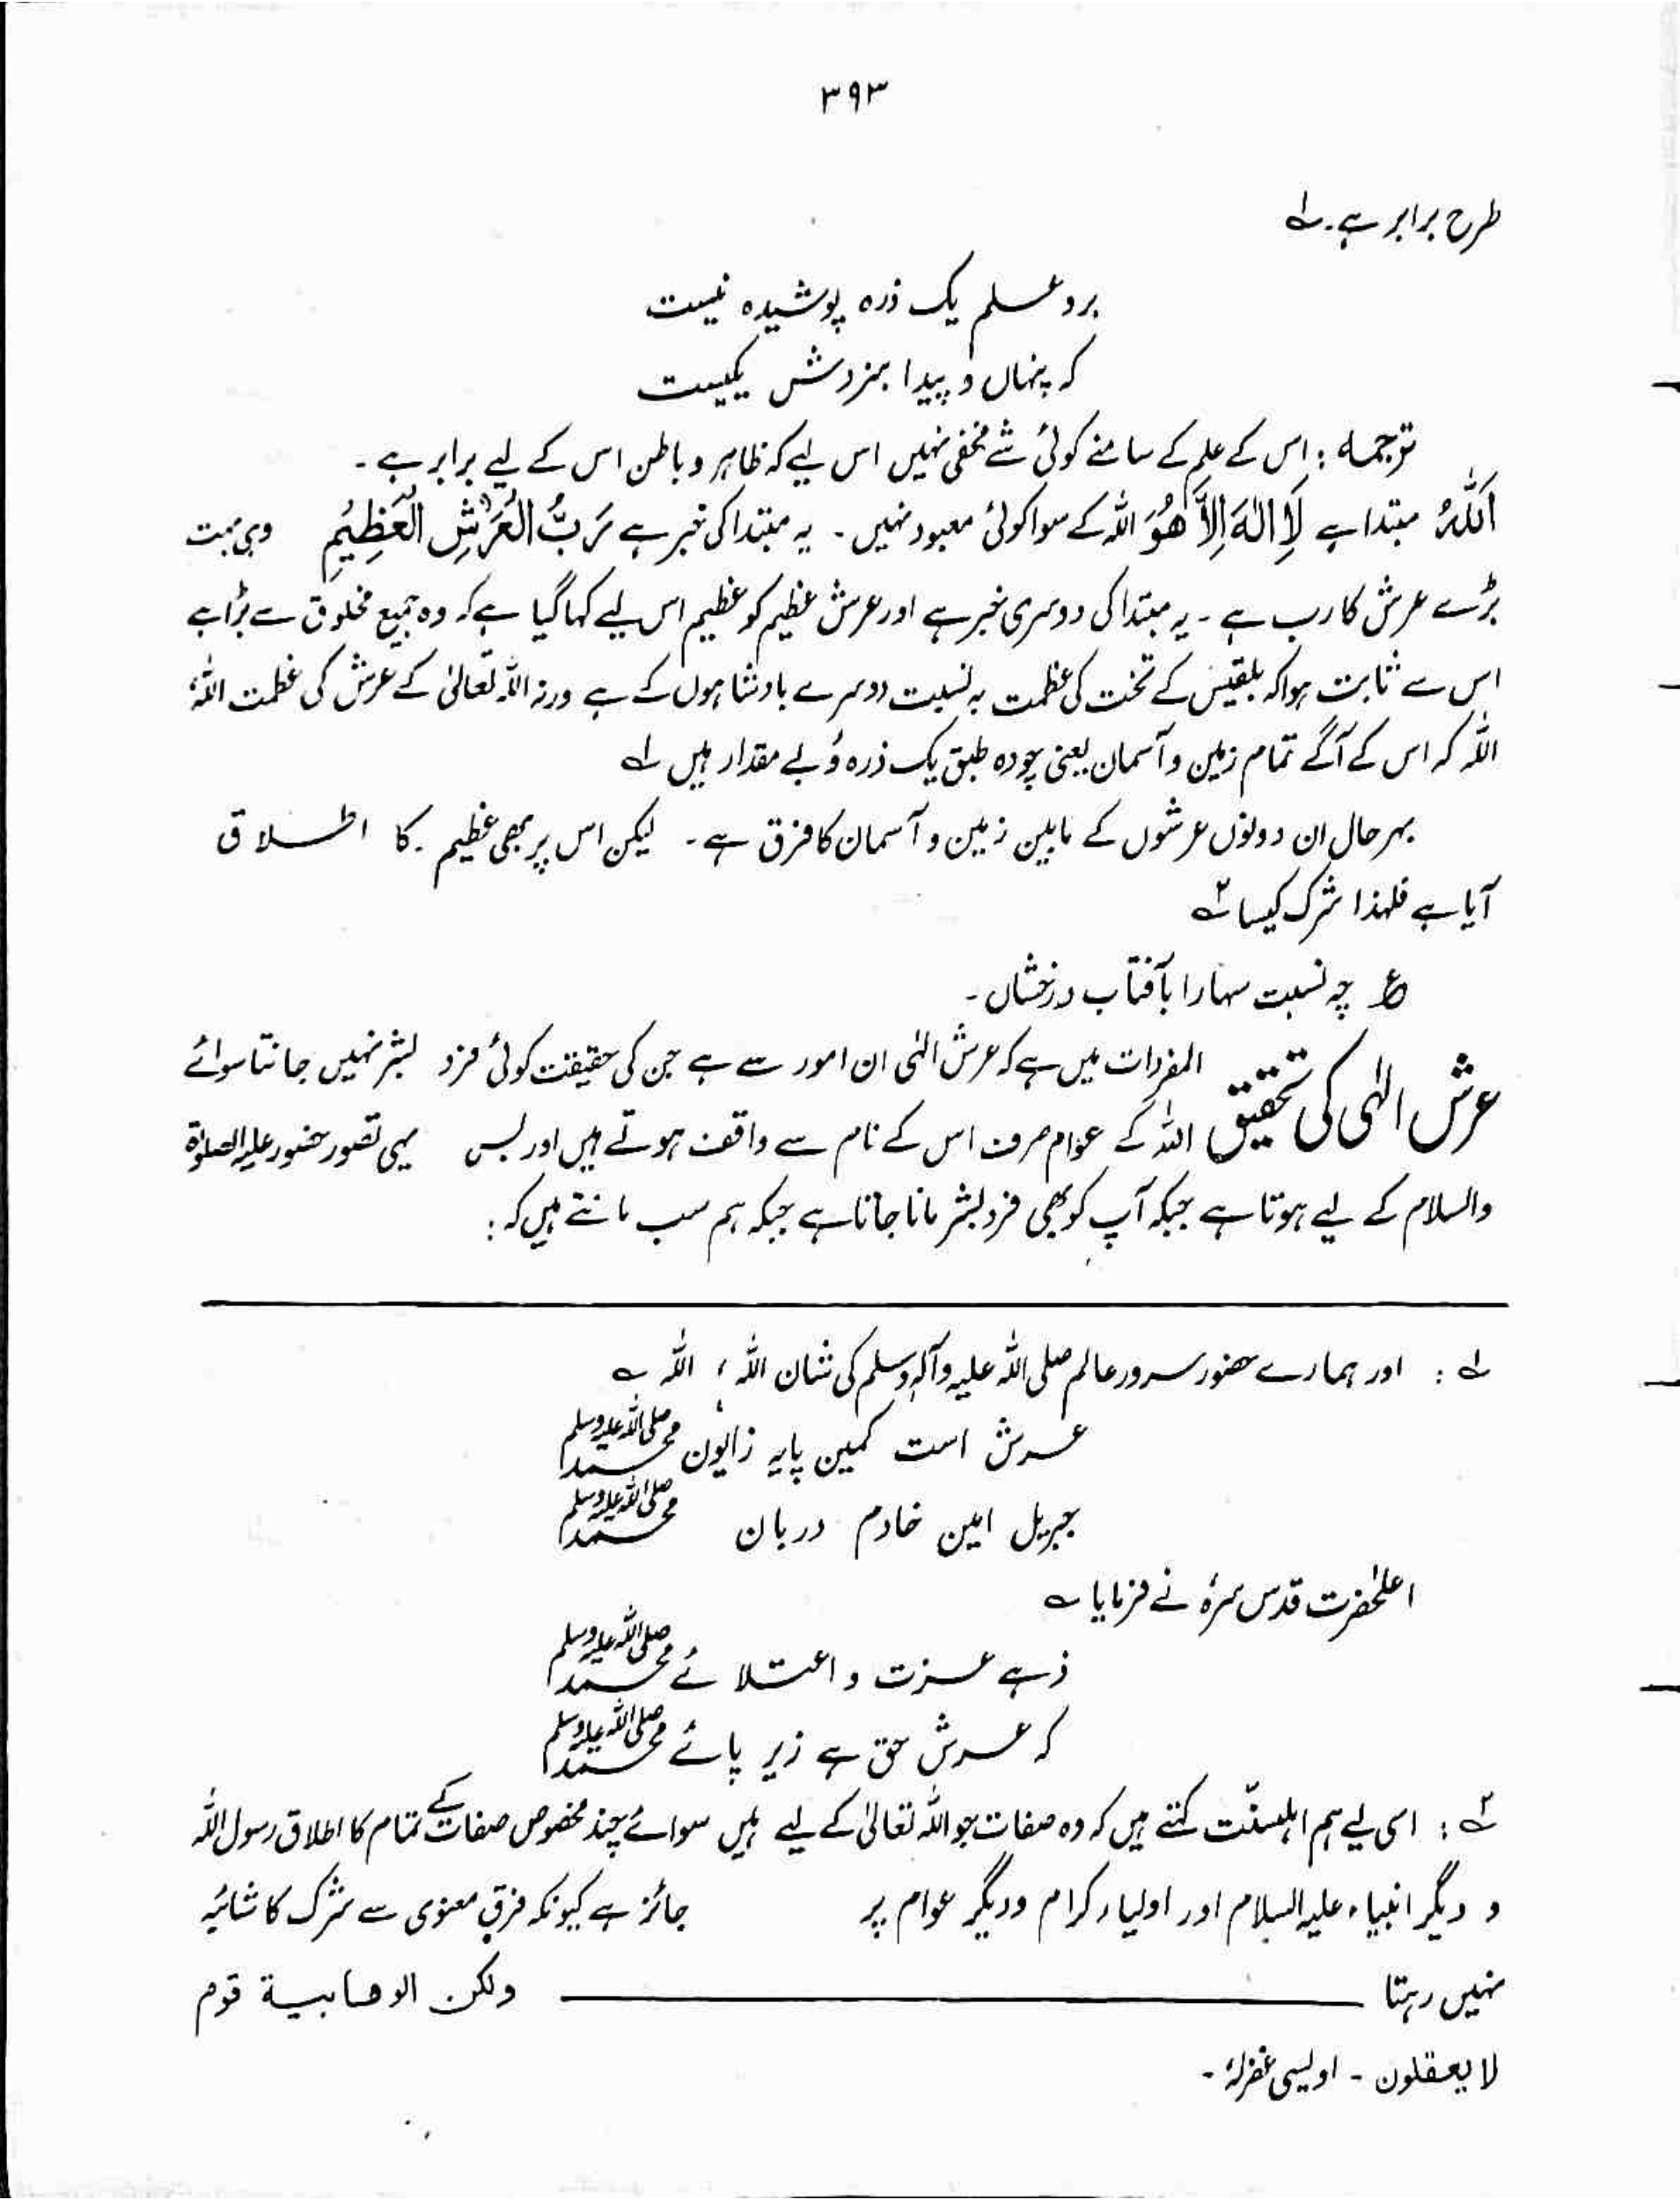 ۳۹۳
طرح برابر ہے۔ ؎
برو علم یک ذرہ پوشیدہ نیست
کہ پنہاں و پیدا بنزدش یکیست
ترجمہ : اس کے علم کے سامنے کوئی شے مخفی نہیں اس لیے کہ ظاہر و باطن اس کے لیے برابر ہے ۔
اَللّٰہُ مبتدا ہے لَا اِلٰہَ اِلَّا ھُوَ اللہ کے سوا کوئی معبود نہیں ۔ یہ مبتدا کی خبر ہے رَبُّ الْعَرْشِ الْعَظِیْمِ وہی بہت
بڑے عرش کا رب ہے ۔ یہ مبتدا کی دوسری خبر ہے اور عرش عظیم کو عظیم اس لیے کہا گیا ہے کہ وہ جمیع مخلوق سے بڑا ہے
اس سے ثابت ہوا کہ بلقیس کے تخت کی عظمت بہ نسبت دوسرے بادشاہوں کے ہے ورنہ اللہ تعالیٰ کے عرش کی عظمت اللہ،
اللہ کہ اس کے آگے تمام زمین و آسمان یعنی چودہ طبق یک ذرہ وُ بے مقدار ہیں لہ
بہر حال ان دونوں عرشوں کے مابین زمین و آسمان کا فرق ہے ۔ لیکن اس پر بھی عظیم ۔ کا اطلاق
آیا ہے فلہذا شرک کیسا ۲ہ
ع چہ نسبت سہا را بآفتاب درخشاں ۔
عرش الٰہی کی تحقیق المفردات میں ہے کہ عرش الٰہی ان امور سے ہے جن کی حقیقت کوئی فرد بشر نہیں جانتا سوائے
اللہ کے عوام صرف اس کے نام سے واقف ہوتے ہیں اور بس یہی تصور حضور علیہ الصلوٰۃ
والسلام کے لیے ہوتا ہے جبکہ آپ کو بھی فرد بشر مانا جاتا ہے جبکہ ہم سب مانتے ہیں کہ :
لہ : اور ہمارے حضور سرور عالم صلی اللہ علیہ وآلہ وسلم کی شان اللہ ، اللہ ؎
عرش است کمین پایہ ز ایون محمد صلی اللہ علیہ وسلم
جبریل امین خادم دربان محمد صلی اللہ علیہ وسلم
اعلٰحضرت قدس سرہٗ نے فرمایا ؎
زہے عزت و اعتلائے محمد صلی اللہ علیہ وسلم
کہ عرش حق ہے زیر پائے محمد صلی اللہ علیہ وسلم
۲ہ : اسی لیے ہم اہلسنّت کہتے ہیں کہ وہ صفات جو اللہ تعالیٰ کے لیے ہیں سوائے چند مخصوص صفات کے تمام کا اطلاق رسول اللہ
و دیگر انبیاء علیہ السلام اور اولیاء کرام و دیگر عوام پر جائز ہے کیونکہ فرق معنوی سے شرک کا شائبہ
نہیں رہتا ولکن الوھابیۃ قوم
لا یعقلون ۔ اویسی غفرلہٗ ۔